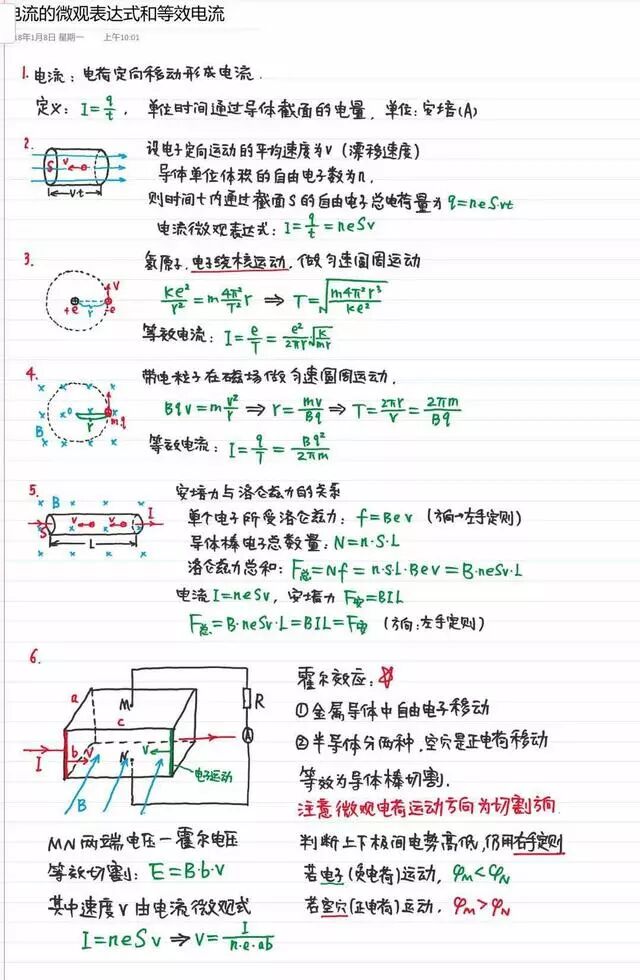 电流的微观表达式和等效电流
18年1月8日 星期一 上午10:01
1. 电流：电荷定向移动形成电流.
定义：I=q/t, 单位时间通过导体截面的电量, 单位：安培(A)
2. 设电子定向运动的平均速度为v (漂移速度)
S v
v·t
导体单位体积的自由电子数为n,
则时间t内通过截面S的自由电子总电荷量为 q=neSvt
电流微观表达式：I=q/t=neSv
3. 氢原子, 电子绕核运动, 做匀速圆周运动
+e r -e v
ke²/r²=m4π²/T² r ⇒ T=√(m4π²r³/ke²)
等效电流：I=e/T=e²/2πr √(k/mr)
4. 带电粒子在磁场做匀速圆周运动,
B o r m.q
Bqv=mv²/r ⇒ r=mv/Bq ⇒ T=2πr/v=2πm/Bq
等效电流：I=q/T=Bq²/2πm
5. 安培力与洛仑兹力的关系
B v v I S L
单个电子所受洛仑兹力：f=Bev (方向→左手定则)
导体棒电子总数量：N=n·S·L
洛仑兹力总和：F总=Nf=n·S·L·Bev=B·neSv·L
电流I=neSv, 安培力 F安=BIL
F总=B·neSv·L=BIL=F安 (方向：左手定则)
6.
a M c b v N v I B R A
电子运动
霍尔效应：
①金属导体中自由电子移动
②半导体分两种, 空穴是正电荷移动
等效为导体棒切割.
注意微观电荷运动方向为切割方向
MN两端电压—霍尔电压
等效切割：E=B·b·v
其中速度v由电流微观式
I=neSv ⇒ v=I/n·e·ab
判断上下极间电势高低, 仍用右手定则
若电子(负电荷)运动, φM<φN
若空穴(正电荷)运动, φM>φN